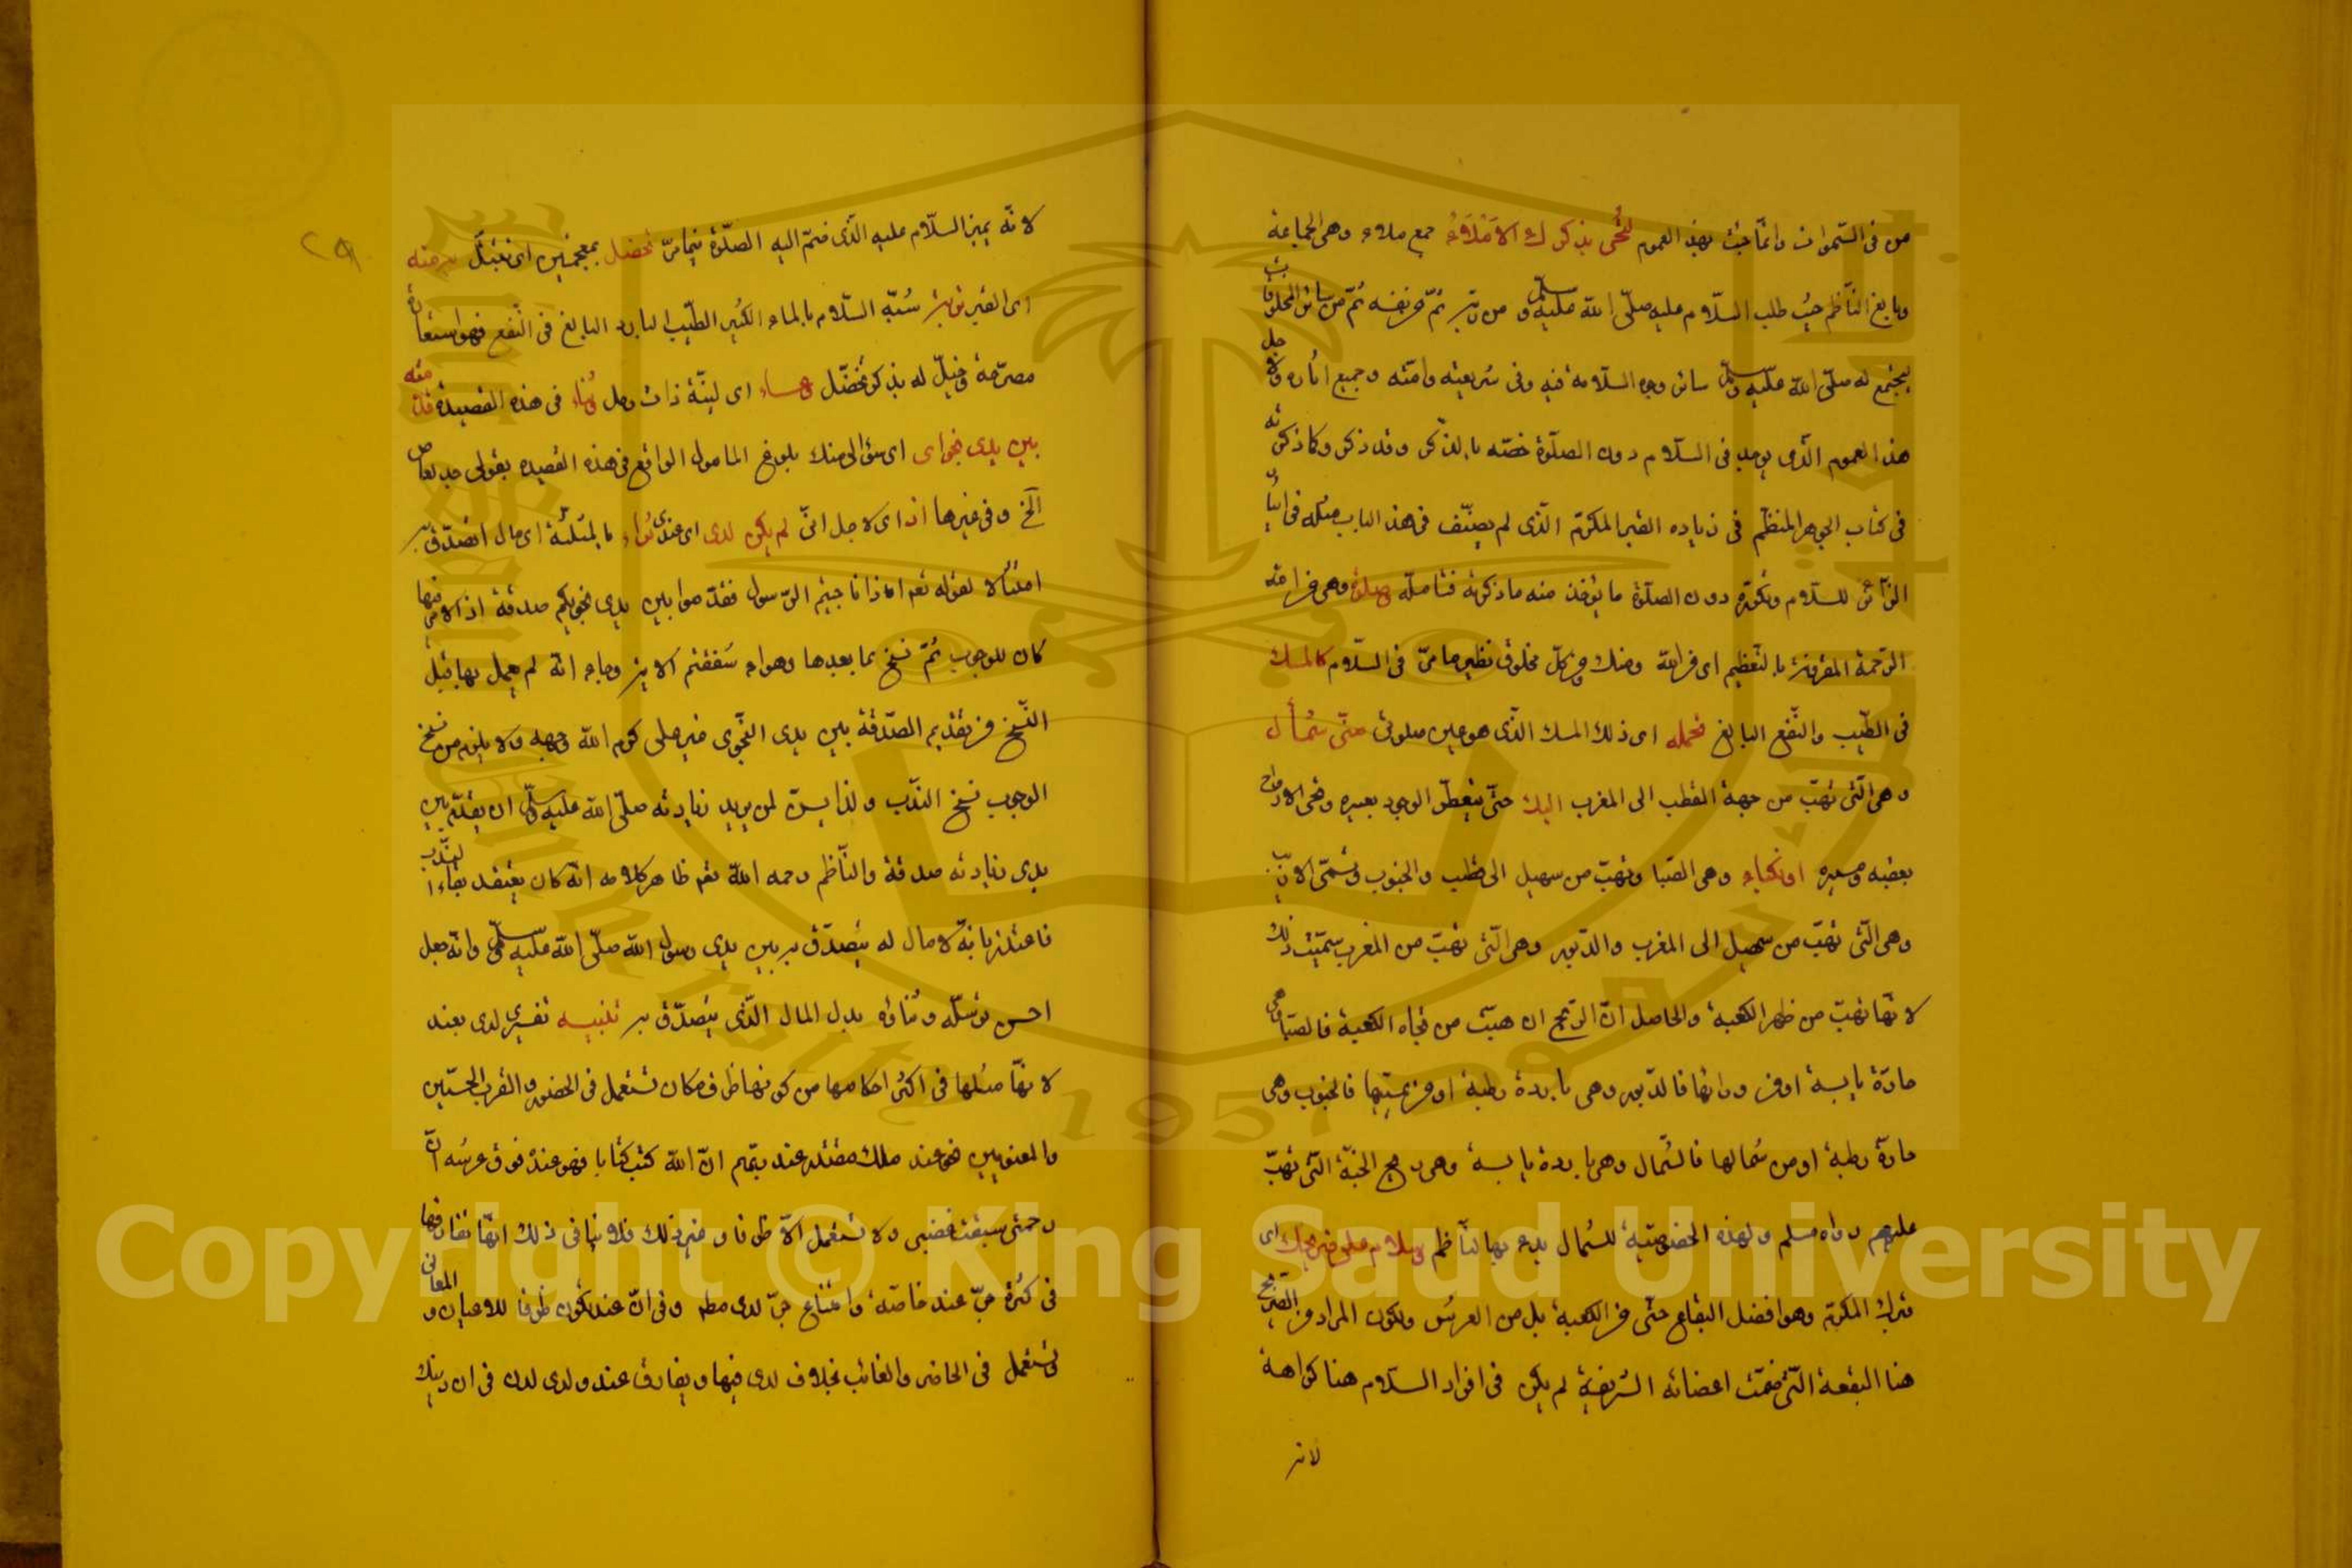 من فى السّموات وانّما حيث بهذا العموم لتحيى بذكرك الاملاء جمع ملاء وهى الجماعة
وبالغ النّاظم حيث طلب السّلام عليه صلّى الله عليه وسلّم من ربّه ثمّ من نفسه ثمّ من سائر المخلوقات
ليجتمع له صلّى الله عليه وسلّم سائر وجوه السّلامة فيه وفى شريعته وامّته وجميع اثاره ولاجل
هذا العموم الّذى يوجد فى السّلام دون الصلوة خصّه بالذكر وقد ذكر وكما ذكرته
فى كتاب الجوهر المنظّم فى زيادة القبر المكرّم الّذى لم يصنّف فى هذا الباب مثله فى
الزّائر للسّلام دون الصلوة ما يؤخذ منه ما ذكرته فتأمله وصلوة وهى من الله
الرّحمة المقرونة بالتّعظيم اى من الله ومنك ومن كلّ مخلوق نظير ما مرّ فى السّلام كالمسك
فى الطّيب والنّفع البالغ تحمله اى ذلك المسك الّذى هو عين صلوتى منّى شمأل
وهى الّتى تهبّ من جهة القطب الى المغرب اليك حتّى يتعطّر الوجود بعبيره وتحيى الارواح
او نكباء وهى الصّبا وتهبّ من سهيل الى قطب والجنوب وتسمّى
وهى الّتى تهبّ من سهيل الى المغرب والدّبور وهى الّتى تهبّ من المغرب سمّيت ذلك
لانّها تهبّ من ظهر الكعبة والحاصل انّ الرّيح ان هبّت من تجاه الكعبة فالصّبا وهى
حارّة يابسة او من ورائها فالدّبور وهى باردة رطبة او من يمينها فالجنوب وهى
حارّة رطبة او من شمالها فالشّمال وهى باردة يابسة وهى ريح الجنّة الّتى تهبّ
عليهم رواه مسلم ولهذه الخصوصيّة للشّمال بدء بها النّاظم وسلام على ضريحك اى
قبرك المكرّم وهو افضل البقاع حتّى من الكعبة بل من العرش ولكون المراد من الضريح
هنا البقعة الّتى ضمّت اعضائه الشريفة لم يكن فى افراد السّلام هنا كراهة
لانه
٢٩
لانّه يميز السّلام عليه الّذى ضمّ اليه الصّلوة فيما مرّ تخضل بمعجمتين اى تبتلّ به منه
اى القبر تربة شبّه السّلام بالماء الكثير الطّيّب البارد البالغ فى النّفع فهو استعارة
مصرّحة وخيّل له بذكر تخضّل وعساء اى ليّنة ذات رمل وثناء فى هذه القصيدة قدّمته
بين يدى نجواى اى سؤالى منك بلوغ المامول الواقع فى هذه القصيدة بقولى
الخ وفى غيرها اذ اى لاجل انّى لم يكن لدى اى عندى ثراء بالمثلّثة اى مال اتصدّق به
امتثالا لقوله تعالى اذا ناجيتم الرّسول فقدّموا بين يدى نجويكم صدقة اذ الامر فيها
كان للوجوب ثمّ نسخ بما بعدها وهو ءاشفقتم الاية وجاء انّه لم يعمل بها قبل
النّسخ من تقديم الصّدقة بين يدى النّجوى غير على كرم الله وجهه ولا يلزم من نسخ
الوجوب نسخ النّدب ولذا يسنّ لمن يريد زيارته صلّى الله عليه وسلّم ان يقدّم بين
يدى زيارته صدقة والنّاظم رحمه الله تعالى ظاهر كلامه انّه كان يعتقد بقاء النّدب
فاعتذر بانّه لا مال له يتصدّق به بين يدى رسول الله صلّى الله عليه وسلّم وانّه جعل
احسن توسّله وثناؤه بدل المال الّذى يتصدّق به تنبيه تفسيرى لدى بعند
لانّها مثلها فى اكثر احكامها من كونها ظرف مكان تستعمل فى الحضور والقرب الحسّيّين
والمعنويين نحو عند مليك مقتدر عند ربّهم انّ الله كتب كتابا فهو عنده فوق عرشه انّ
رحمتى سبقت غضبى ولا تستعمل الّا ظرفا وغير ذلك فلا ينافى ذلك انّها تفارقها
فى كثرة جرّ عند خاصّة وامتناع جرّ لدى مطلقا وفى انّ عند تكون ظرفا للاعيان والمعانى
وتستعمل فى الحاضر والغائب بخلاف لدى فيها ويفارق عند ولدى لدن فى ان
Copyright © King Saud University
1957